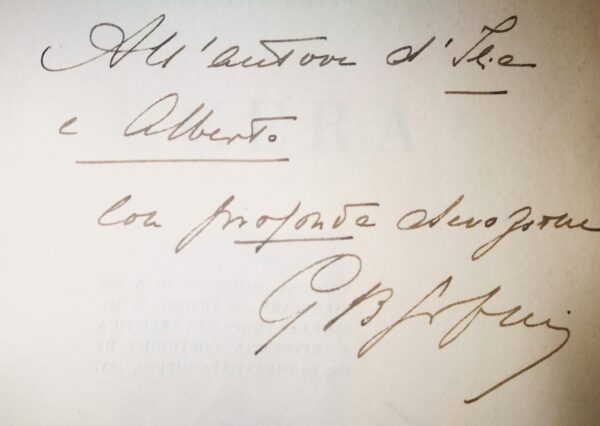 All'autore d'Ilia
e Alberto
con profonda devozione
G B Gifuni